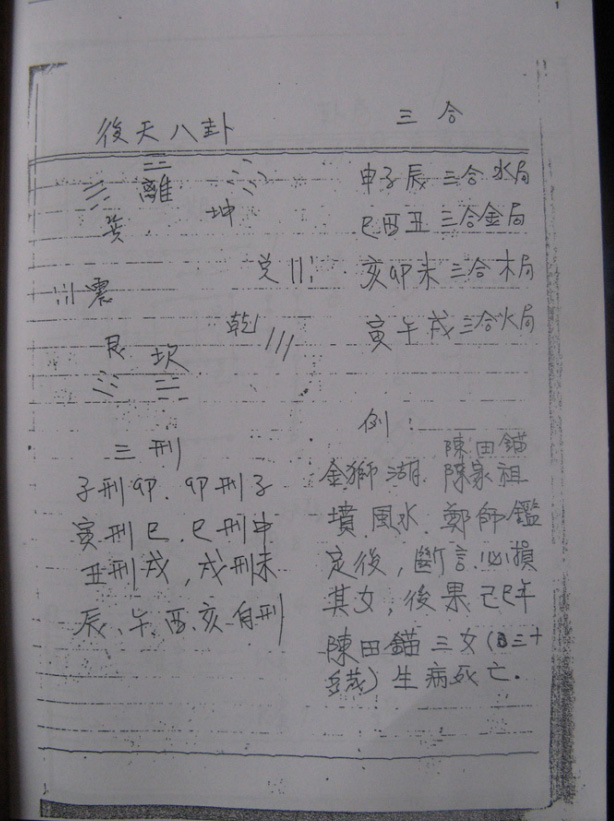 1
後天八卦
離
巽
坤
兌
震
乾
艮
坎
三刑
子刑卯、卯刑子
寅刑巳、巳刑申
丑刑戌，戌刑未
辰、午、酉、亥自刑
三合
申子辰三合水局
巳酉丑三合金局
亥卯未三合木局
寅午戌三合火局
例：
陳田錨
金獅湖、陳家祖
墳風水、鄭師鑑
定後，斷言必損
其女，後果己巳年
陳田錨三女（三十
歲）生病死亡.